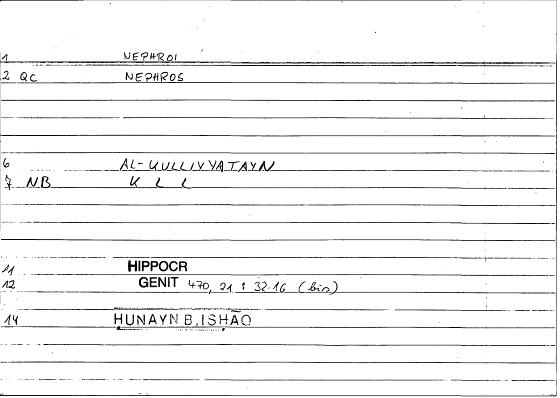 1 NEPHROI
2 QC NEPHROS
6 AL-KULLIYYATAYN
7 NB K L L
11 HIPPOCR
12 GENIT 470, 21 : 32.16 (bis)
14 HUNAYN B. ISHAQ